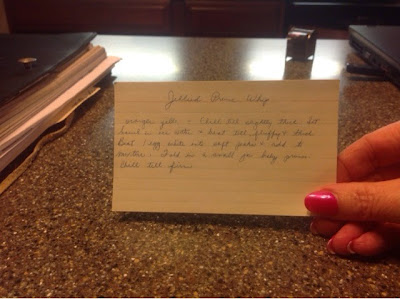 Jellied Prune Whip
orange jello & chill till slightly thick. Set
bowl in ice water & beat till fluffy & thick
Beat 1 egg white into soft peaks & add to
mixture. Fold in 2 small jars baby prunes.
Chill till firm.